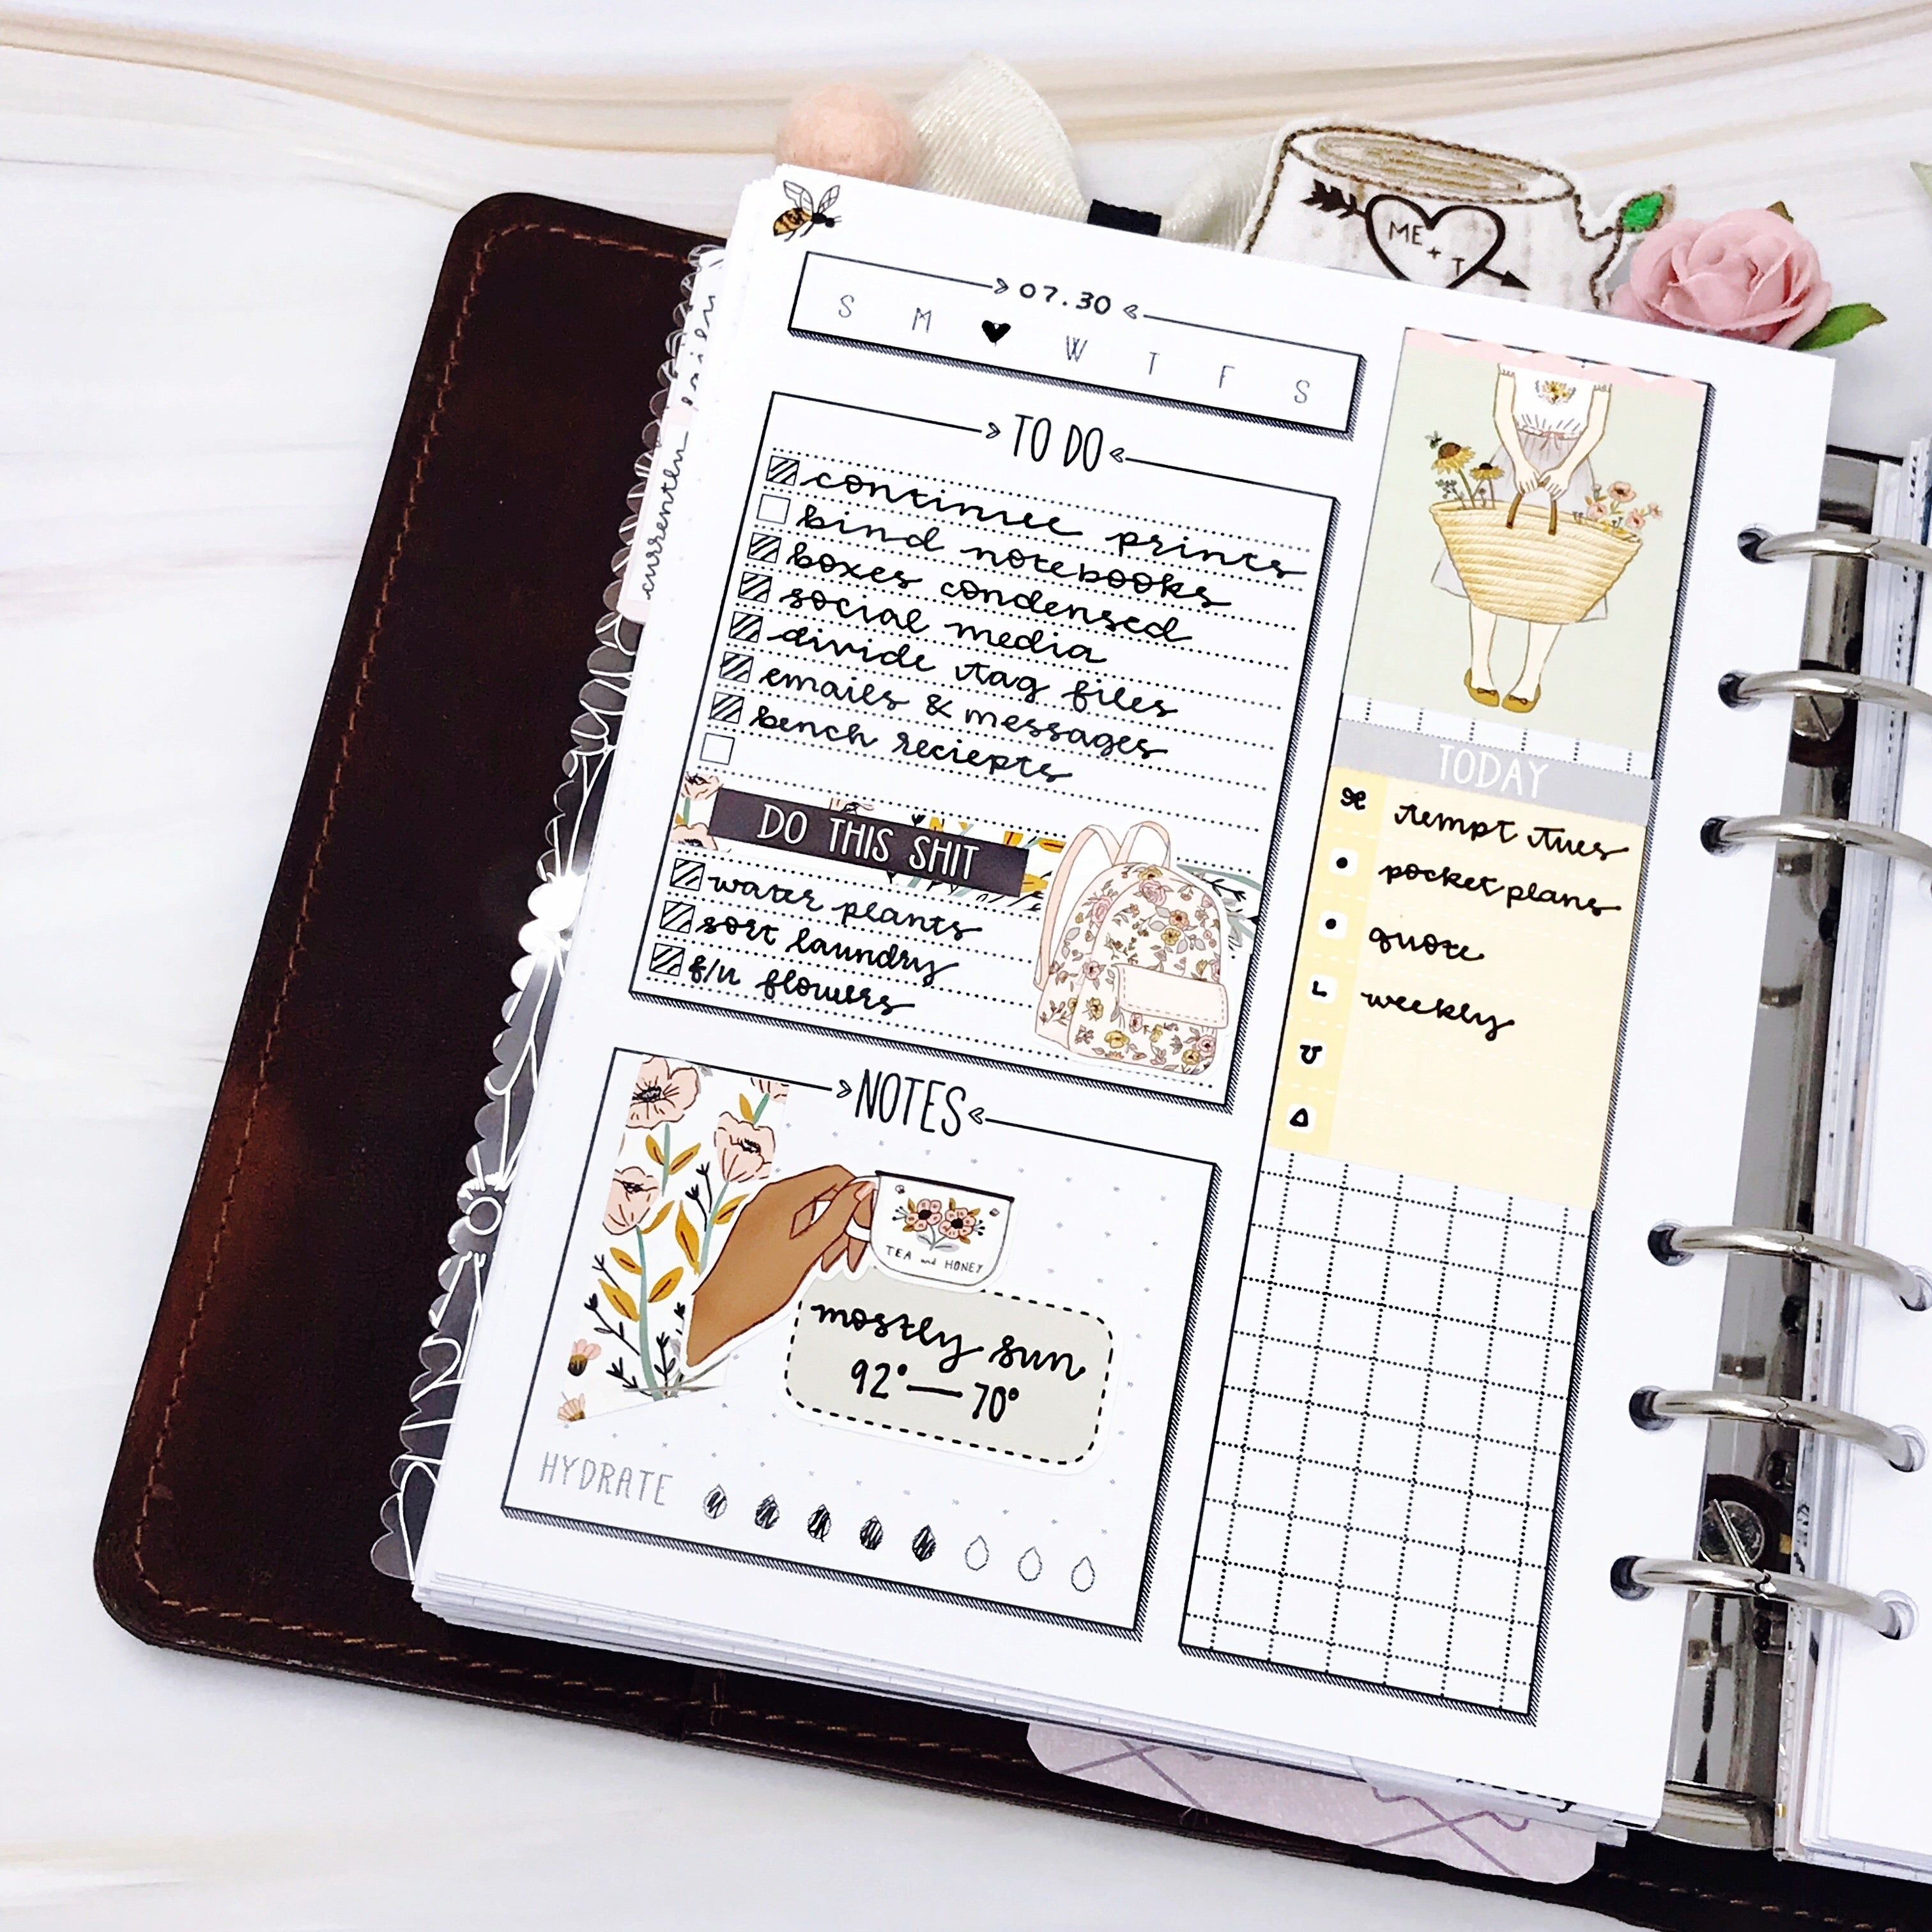 07.30
S M ♥ W T F S
TO DO
continue prints
bind notebooks
boxes condensed
social media
divide tag files
emails & messages
bench reciepts
DO THIS SHIT
water plants
sort laundry
f/u flowers
NOTES
TEA and HONEY
mostly sun
92° — 70°
HYDRATE
TODAY
tempt tues
pocket plans
quote
L weekly
ME + T
currently